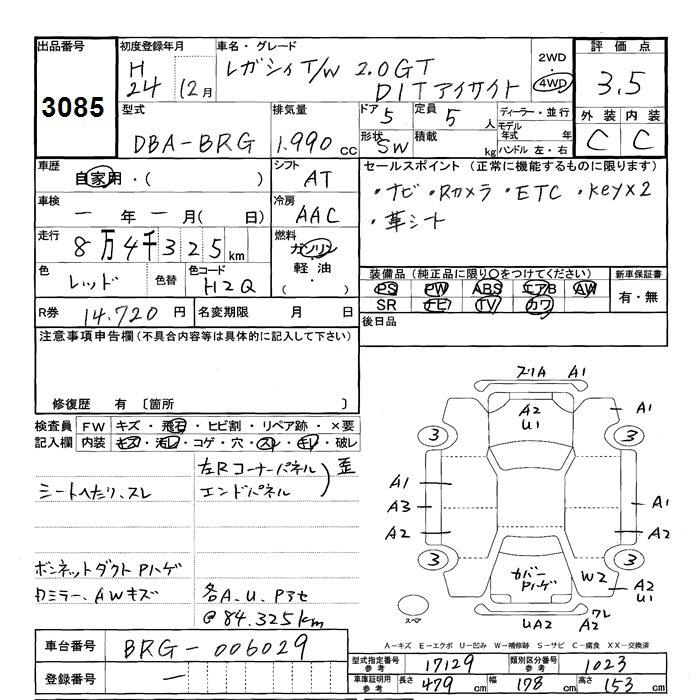 出品番号
3085
初度登録年月
H
24 12月
車名・グレード
レガシィT/W 2.0GT
DITアイサイト
2WD
4WD
評価点
3.5
外装 内装
C C
型式
DBA-BRG
排気量
1.990 cc
ドア 5
定員 5 人
形状 SW
積載 kg
ディーラー・並行
モデル年式 年
ハンドル 左・右
車歴
自家用・( )
シフト
AT
車検
ー 年 ー 月( 日)
冷房
AAC
走行
8万4千325km
燃料
ガソリン
軽油・
( )
色
レッド
色替
色コード
H2Q
R券 14.720 円
名変期限 月 日
セールスポイント(正常に機能するものに限ります)
・ナビ・Rカメラ・ETC・Key×2
・革シート
装備品(純正品に限り○をつけてください)
PS PW ABS エアB AW
SR ナビ TV カワ
新車保証書
有・無
後日品
注意事項申告欄(不具合内容等は具体的に記入して下さい)
修復歴 有 〔箇所
検査員記入欄
FW キズ・飛石・ヒビ割・リペア跡・×要
内装 キズ・汚レ・コゲ・穴・スレ・キレ・破レ
左Rコーナーパネル
エンドパネル
)歪
シートヘたり、スレ
ボンネットダクトPハゲ
ロミラー、AWキズ
各A、U、P3セ
@84.325km
ズリA A1
A2
U1
A1
3 3
A1
A3
A2
A1
A2
3 3
カバー
Pハゲ
W2
A2
U1
スペア
UA2
ワレ
A2
A−キズ E−エクボ U−凹み W−補修跡 S−サビ C−腐食 XX−交換済
車台番号
BRG-006029
登録番号
ー
型式指定番号 参考
17129
類別区分番号 参考
1023
車庫証明用 参考
長さ 479 cm
幅 178 cm
高さ 153 cm